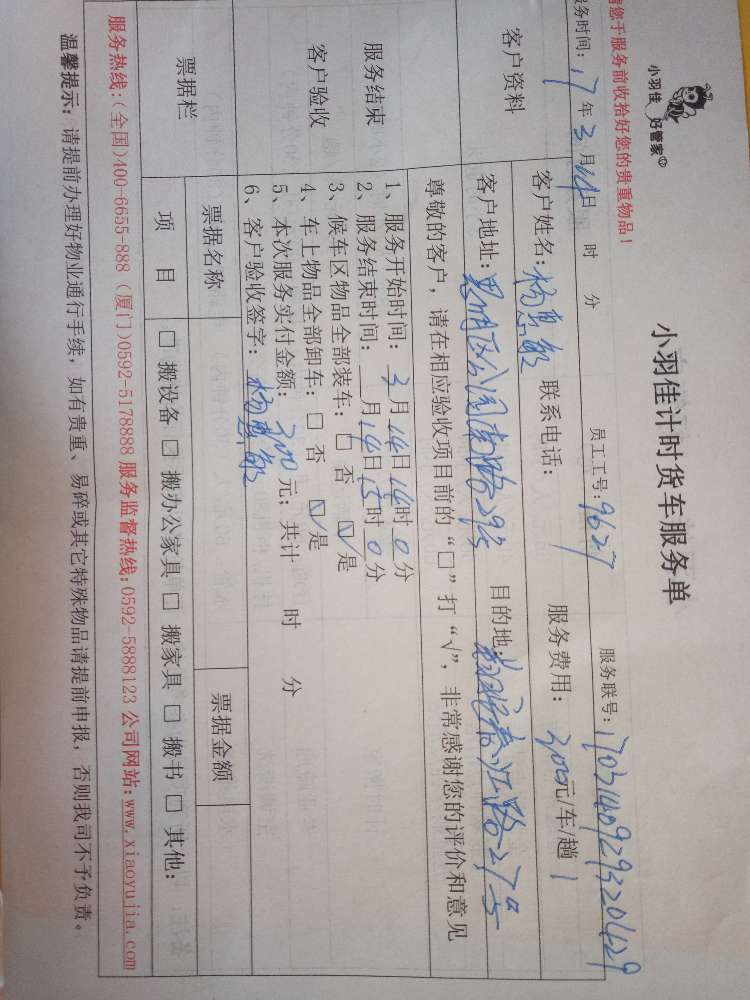 小羽佳 好管家
小羽佳计时货车服务单
您于服务前收拾好您的贵重物品！
务时间：17年3月14日 时 分 员工工号：9627 服务联号：1703140929320429
客户资料
客户姓名：杨惠敏 联系电话： 服务费用：300元/车/趟
客户地址：思明区公园南路29号 目的地：春江路27号
尊敬的客户，请在相应验收项目前的“□”打“√”，非常感谢您的评价和意见
服务结束
客户验收
1、服务开始时间：3月14日14时0分
2、服务结束时间：月14日15时0分
3、候车区物品全部装车：□ 否 ☑ 是
4、车上物品全部卸车：□ 否 ☑ 是
5、本次服务实付金额：300元；共计 时 分
6、客户验收签字：杨惠敏
票据栏
票据名称 票据金额
项 目 □ 搬设备 ☑ 搬办公家具 □ 搬家具 □ 搬书 □ 其他：
服务热线：(全国)400-6655-888 (厦门)0592-5178888 服务监督热线：0592-5888123 公司网站：www.xiaoyujia.com
温馨提示：请提前办理好物业通行手续，如有贵重、易碎或其它特殊物品请提前申报，否则我司不予负责。